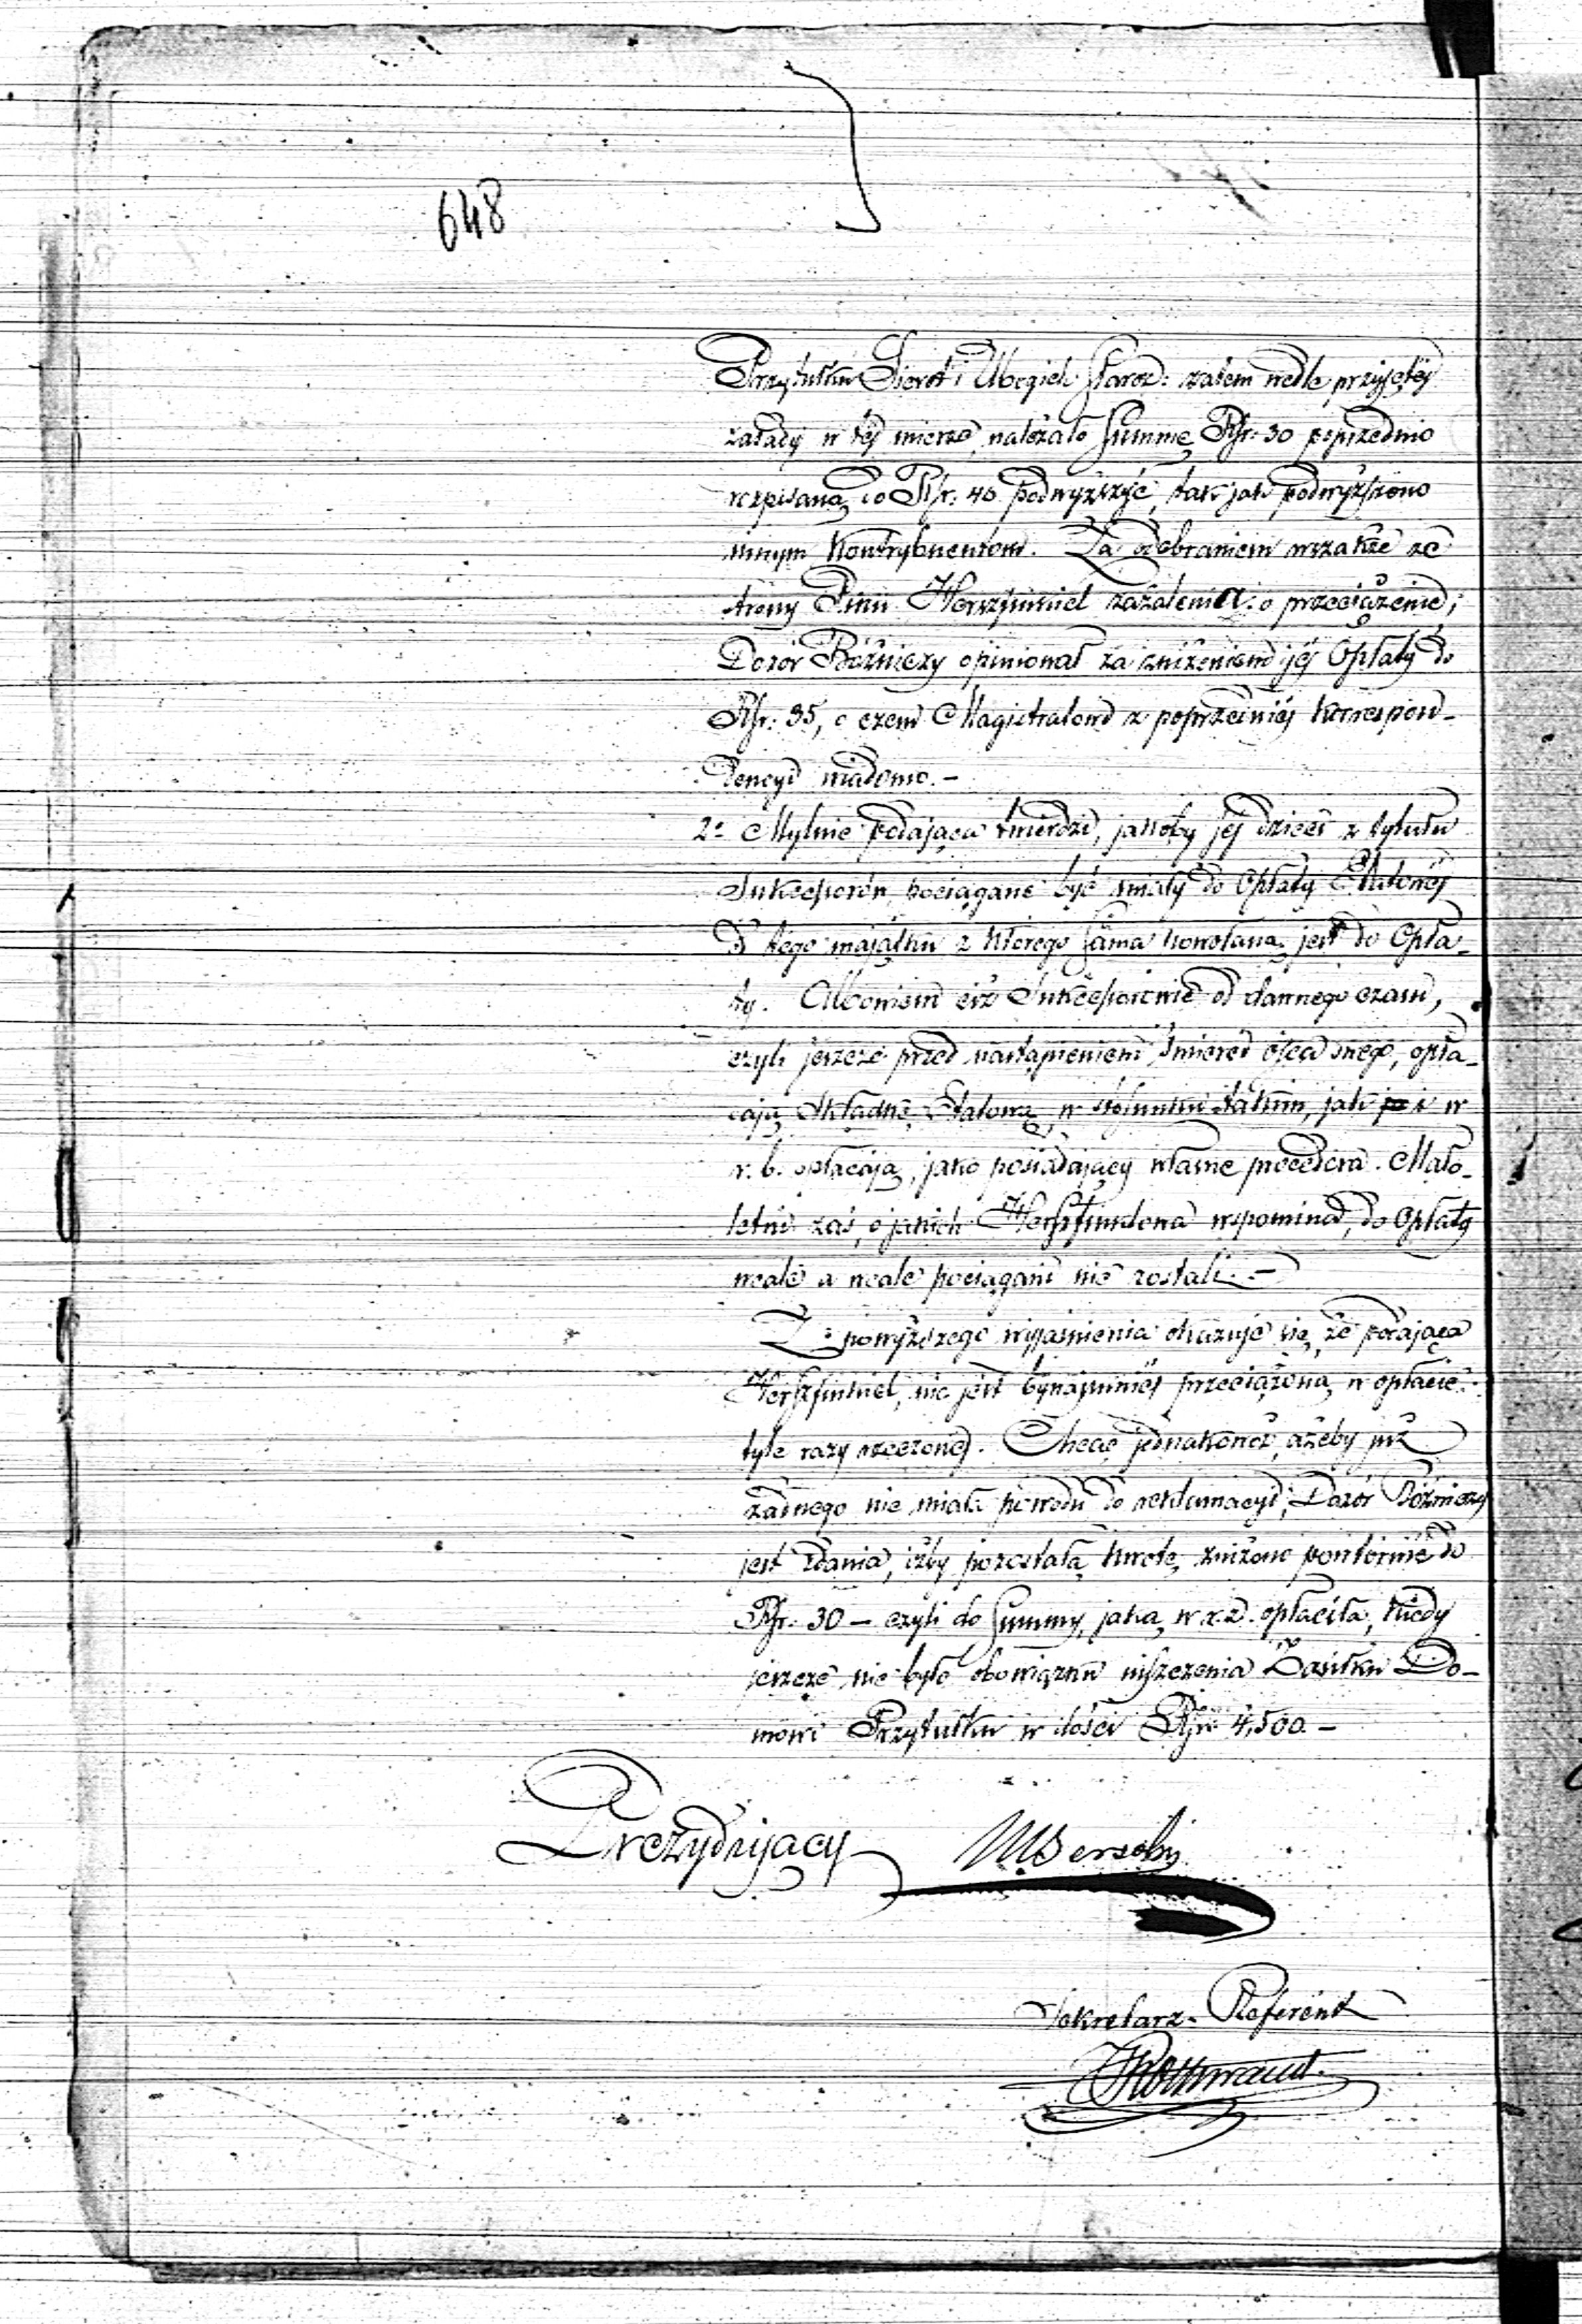 648
Przytułku Sierot i Ubogich Staroz: zatem wedle przyjętéj
zasady w téj mierze, należało Summę Rsr: 30 poprzednio
rozpisaną do Rsr: 40 podwyższyć, tak jak podwyższono
innym Kontrybuentom. Za odebraniem wszakże ze
strony Pinii Herszfinkiel zażalenia o przeciążenie,
Dozór Bóźniczy opiniował za zniżeniem jéj Opłaty do
Rsr: 35, o czem Magistratowi z poprzedniéj Korrespon-
dencyi wiadomo. -
2º Mylnie podająca twierdzi, jakoby jéj dzieci z tytułu
Sukcessorów pociągane być miały do Opłaty Etatowéj
z tego majątku z którego sama powołaną jest do Opła-
ty. Albowiem ciż Sukcessorowie od dawnego czasu,
czyli jeszcze przed nastąpieniem śmierci ojca swego, opła-
cają Składkę Etatową w stosunku takim, jak i w
r. b. opłacają, jako posiadający własne procedera. Mało-
letni zaś, o jakich Herszfinklowa wspomina, do Opłaty
wcale a wcale pociągani nie zostali. -
Z powyższego wyjaśnienia okazuje się, że podająca
Herszfinkiel, nie jest bynajmniéj przeciążoną w opłacie
tyle razy rzeczonéj. Chcąc jednakowoż, ażeby już
żadnego nie miała powodu do reklamacyi, Dozór Bóźniczy
jest zdania, iżby pozostałą kwotę zniżono powtórnie do
Rsr: 30 - czyli do Summy, jaką w r. z. opłaciła, kiedy
jeszcze nie było obowiązku uiszczenia Zasiłku Do-
mowi Przytułku w ilości Rsr: 4,500. -
Prezydujący M Bersohn
Sekretarz-Referent